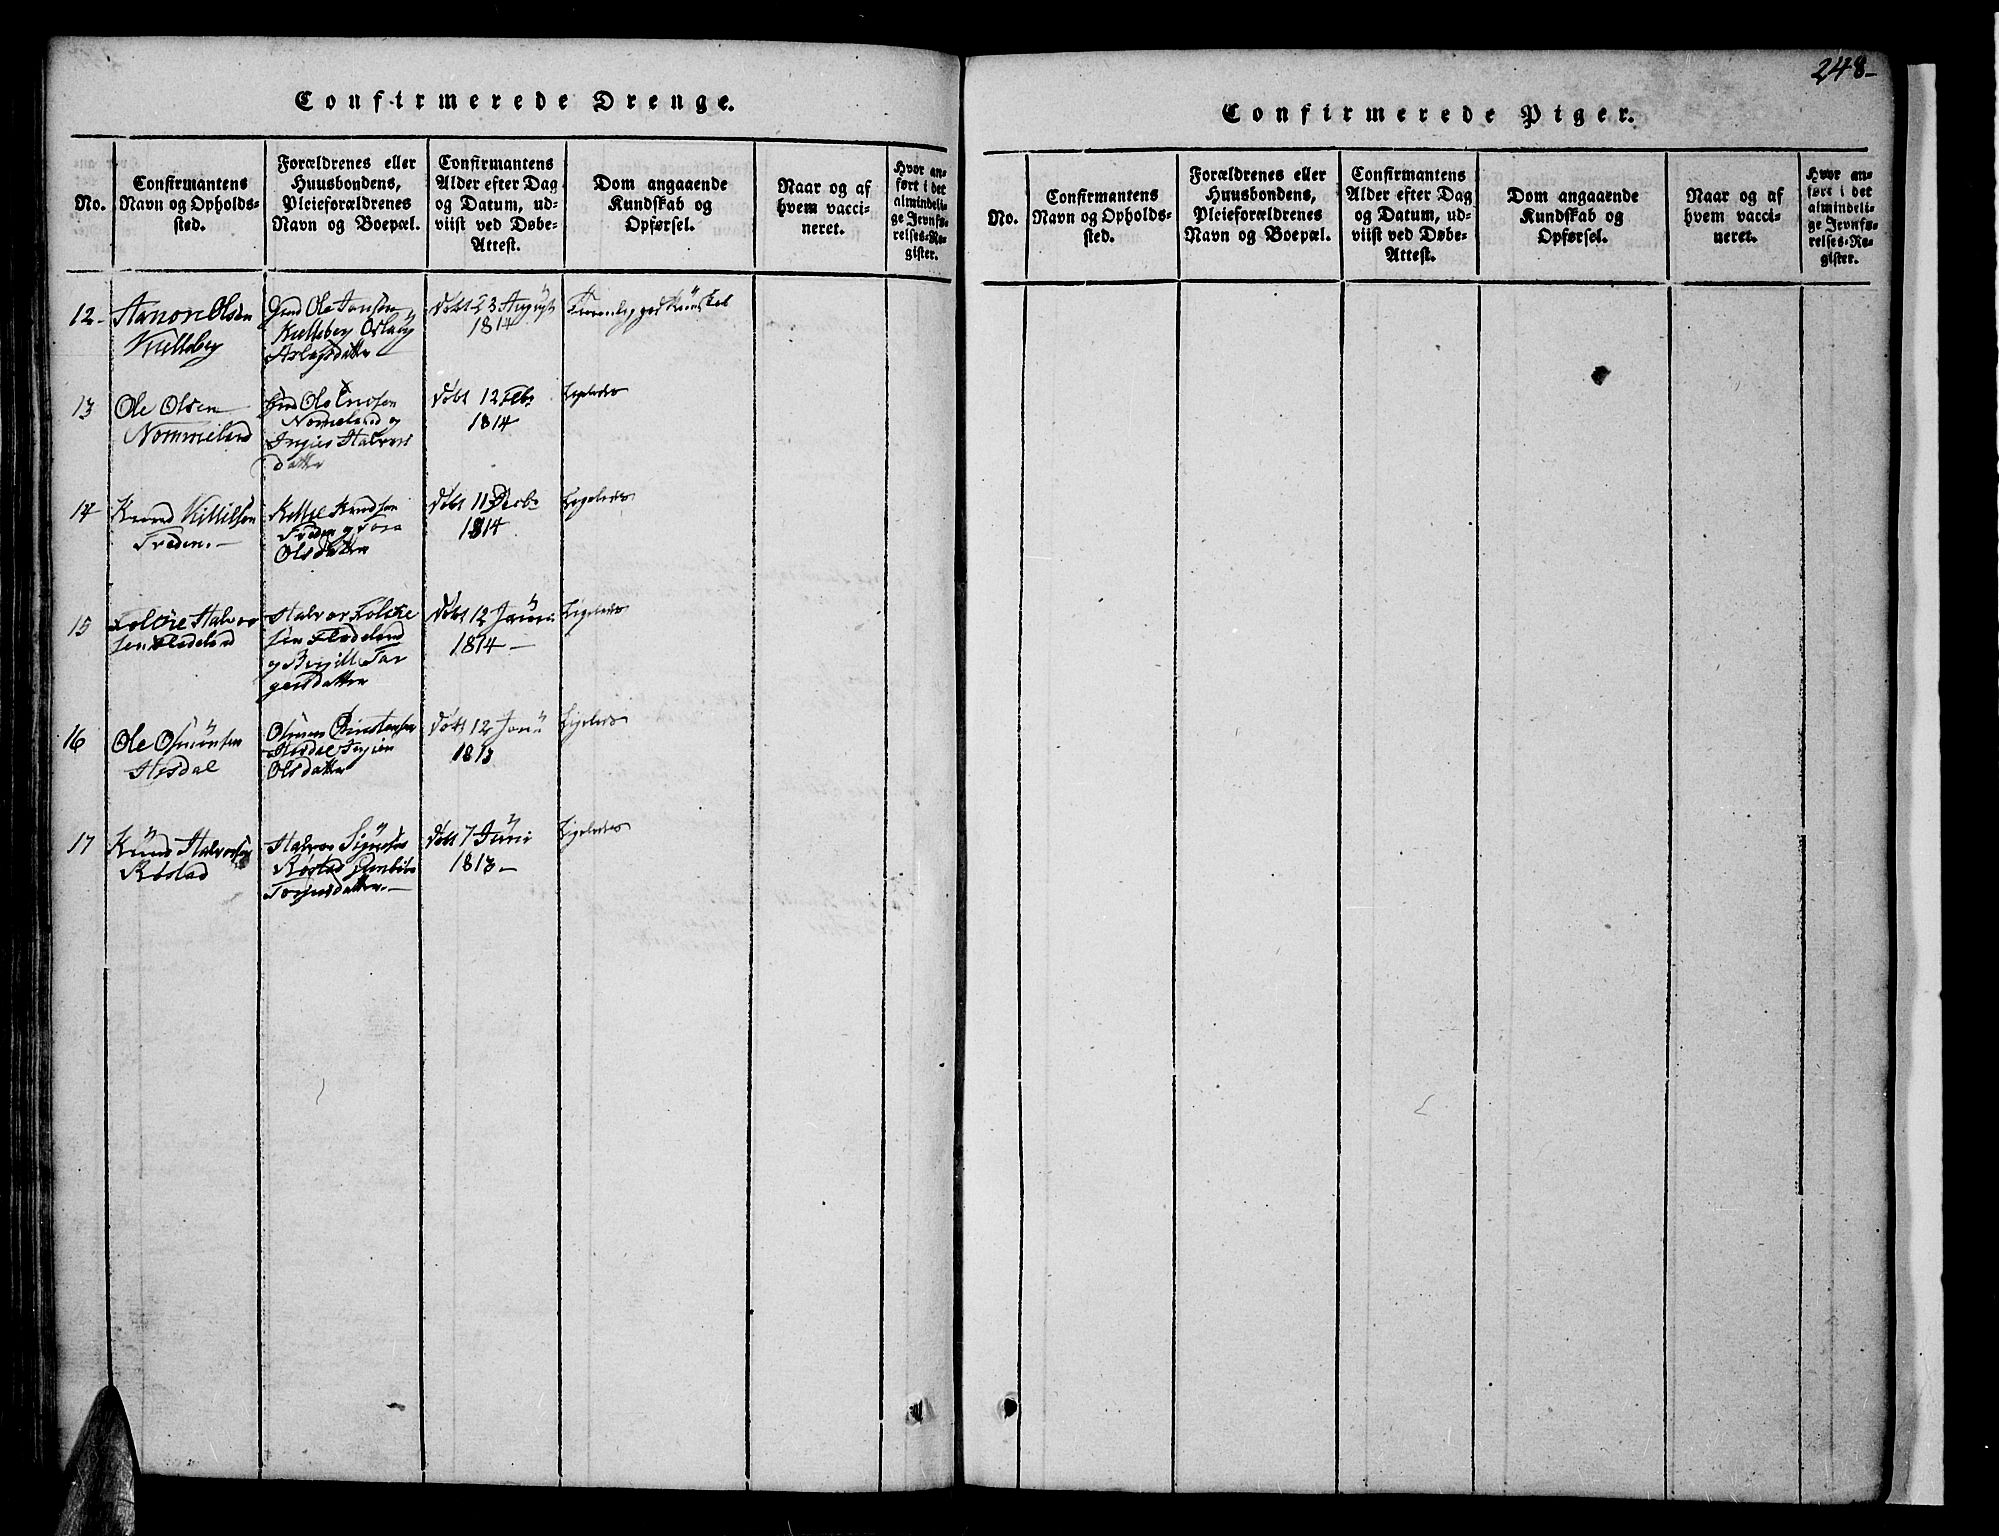 248-
Confirmerede Drenge.
No.
Confirmantens
Navn og Opholds-
sted.
Forældrenes eller
Huusbondens,
Pleieforældrenes
Navn og Boepæl.
Confirmantens
Alder efter Dag
og Datum, ud-
viist ved Døbe-
Attest.
Dom angaaende
Kundskab og
Opførsel.
Naar og af
hvem vacci-
neret.
Hvor an-
ført i det
almindeli-
ge Jevnfø-
relses-Re-
gister.
12-
Aanon Olsen
Kulleberg
Gmd Ole
Kulleberg Oslaug
Aslagsdatter
Døbt 23 August
1814
god Kundskab
13
Ole Olsen
Nommeland
Gmd Ole Knudsen
Nomeland og
Halvors
datter
Døbt 12 Feb
1814
Ligeledes
14
Knud Killilsøn
Freden. -
Knudsøn
Freden og Tore
Olsdatter
Døbt 11
1814
Ligeledes
15
Halvor
sen Fladeland
Halvor
sen Fladeland
og Tar
geisdatter
Døbt 12
1814 -
Ligeledes
16
Ole Osmunsen
Hisdal
Osmun
Hisdal
Olsdatter
Døbt 12
1813
Ligeledes
17
Knud Halvorsen
Røstad
Halvor
Røstad
Døbt 7 Juni
1813 -
Ligeledes
Confirmerede Piger.
No.
Confirmantens
Navn og Opholds-
sted.
Forældrenes eller
Huusbondens,
Pleieforældrenes
Navn og Boepæl.
Confirmantens
Alder efter Dag
og Datum, ud-
viist ved Døbe-
Attest.
Dom angaaende
Kundskab og
Opførsel.
Naar og af
hvem vacci-
neret.
Hvor an-
ført i det
almindeli-
ge Jevnfø-
relses-Re-
gister.